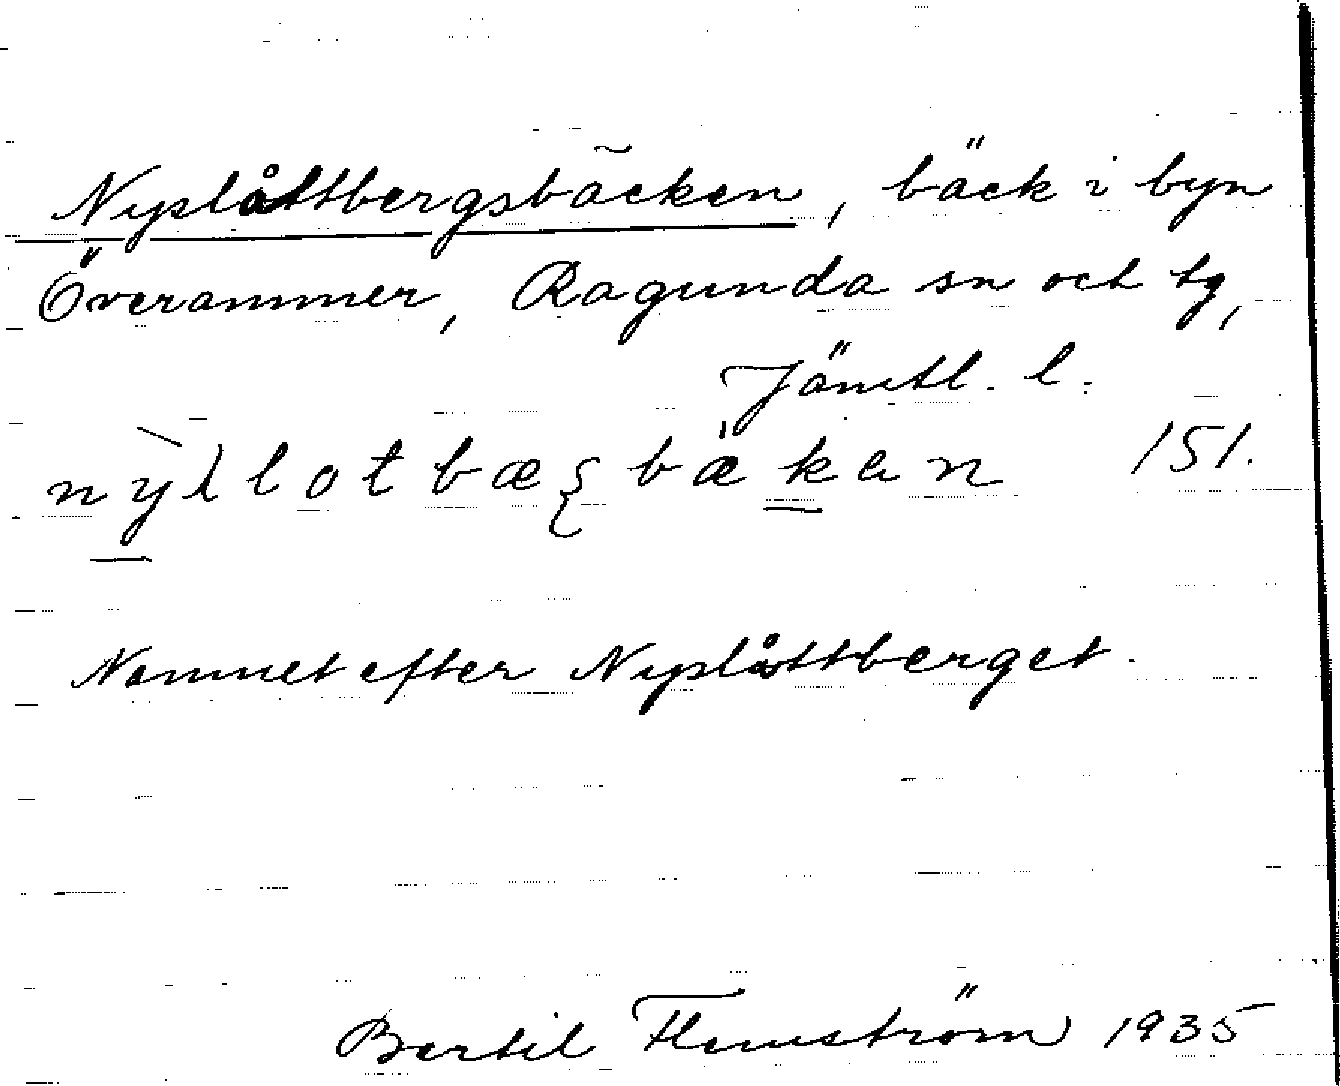 Nyslåttbergsbäcken, bäck i byn
Överammer, Ragunda sn och tg,
Jämtl. l.
nỳl lotbæʂbækan 151.
Namnet efter Nyslåttberget.
Bertil Flemström 1935